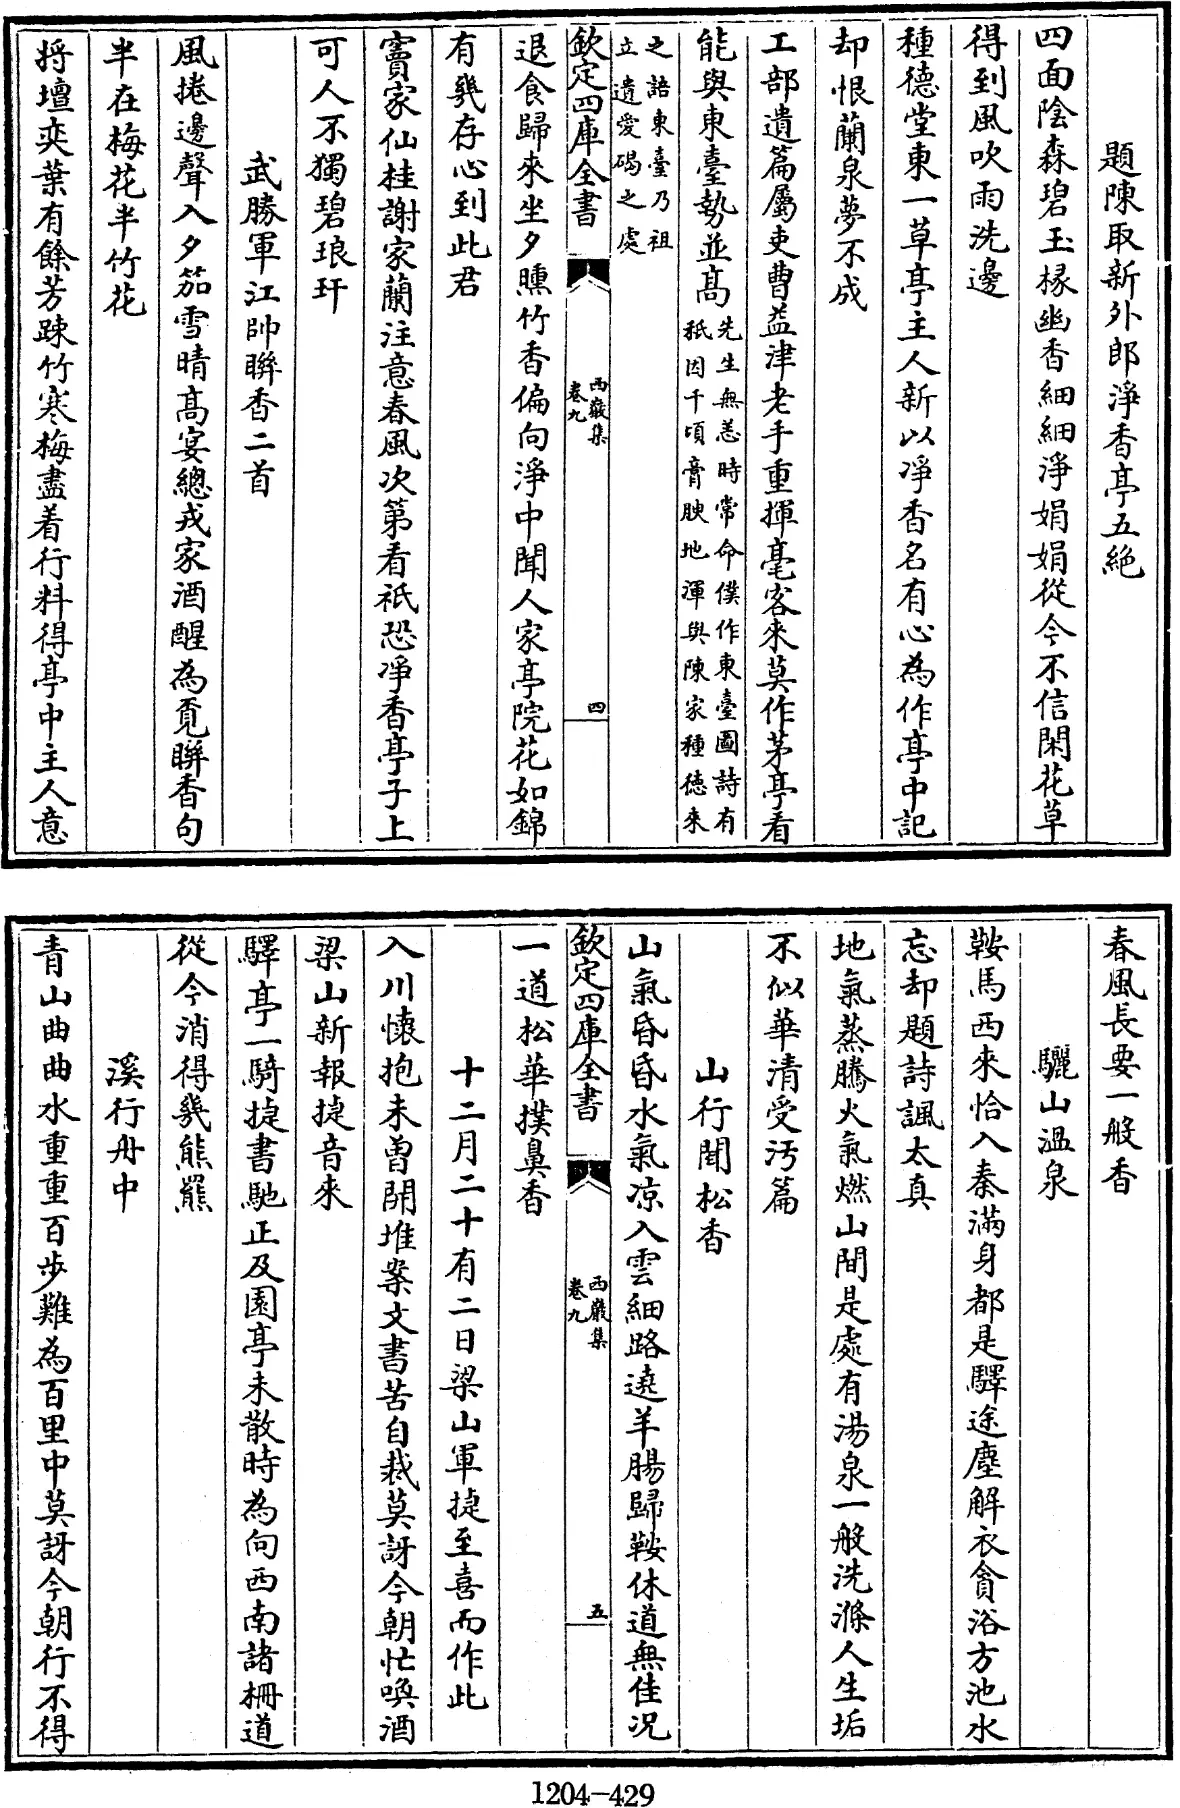 題陳取新外郎淨香亭五絶
四面陰森碧玉椽幽香細細淨娟娟從今不信閑花草
得到風吹雨洗邊
種德堂東一草亭主人新以淨香名有心為作亭中記
却恨蘭泉夢不成
工部遺篇屬吏曹益津老手重揮毫客來莫作茅亭看
能與東臺勢並髙先生無恙時常命僕作東臺圖詩有
秪因千頃膏腴地渾與陳家種徳来
之語東臺乃祖
立遺愛碣之處
欽定四庫全書
西巖集
卷九
四
退食歸來坐夕曛竹香偏向淨中聞人家亭院花如錦
有幾存心到此君
竇家仙桂謝家蘭注意春風次第看祇恐淨香亭子上
可人不獨碧琅玕
武勝軍江帥聨香二首
風捲邊聲入夕笳雪晴髙宴總戎家酒醒為覓聨香句
半在梅花半竹花
將壇奕葉有餘芳踈竹寒梅盡着行料得亭中主人意
春風長要一般香
驪山溫泉
鞍馬西來恰入秦滿身都是驛途塵解衣貪浴方池水
忘却題詩諷太真
地氣蒸騰火氣燃山間是處有湯泉一般洗滌人生垢
不似華清受汚篇
山行聞松香
山氣昏昏水氣凉入雲細路遶羊腸歸鞍休道無佳况
一道松華撲鼻香
欽定四庫全書
西巖集
卷九
五
十二月二十有二日梁山軍捷至喜而作此
入川懷抱未曾開堆案文書苦自裁莫訝今朝忙喚酒
梁山新報捷音來
驛亭一騎捷書馳正及園亭未散時為向西南諸栅道
從今消得幾熊羆
溪行舟中
青山曲曲水重重百步難為百里中莫訝今朝行不得
1204-429